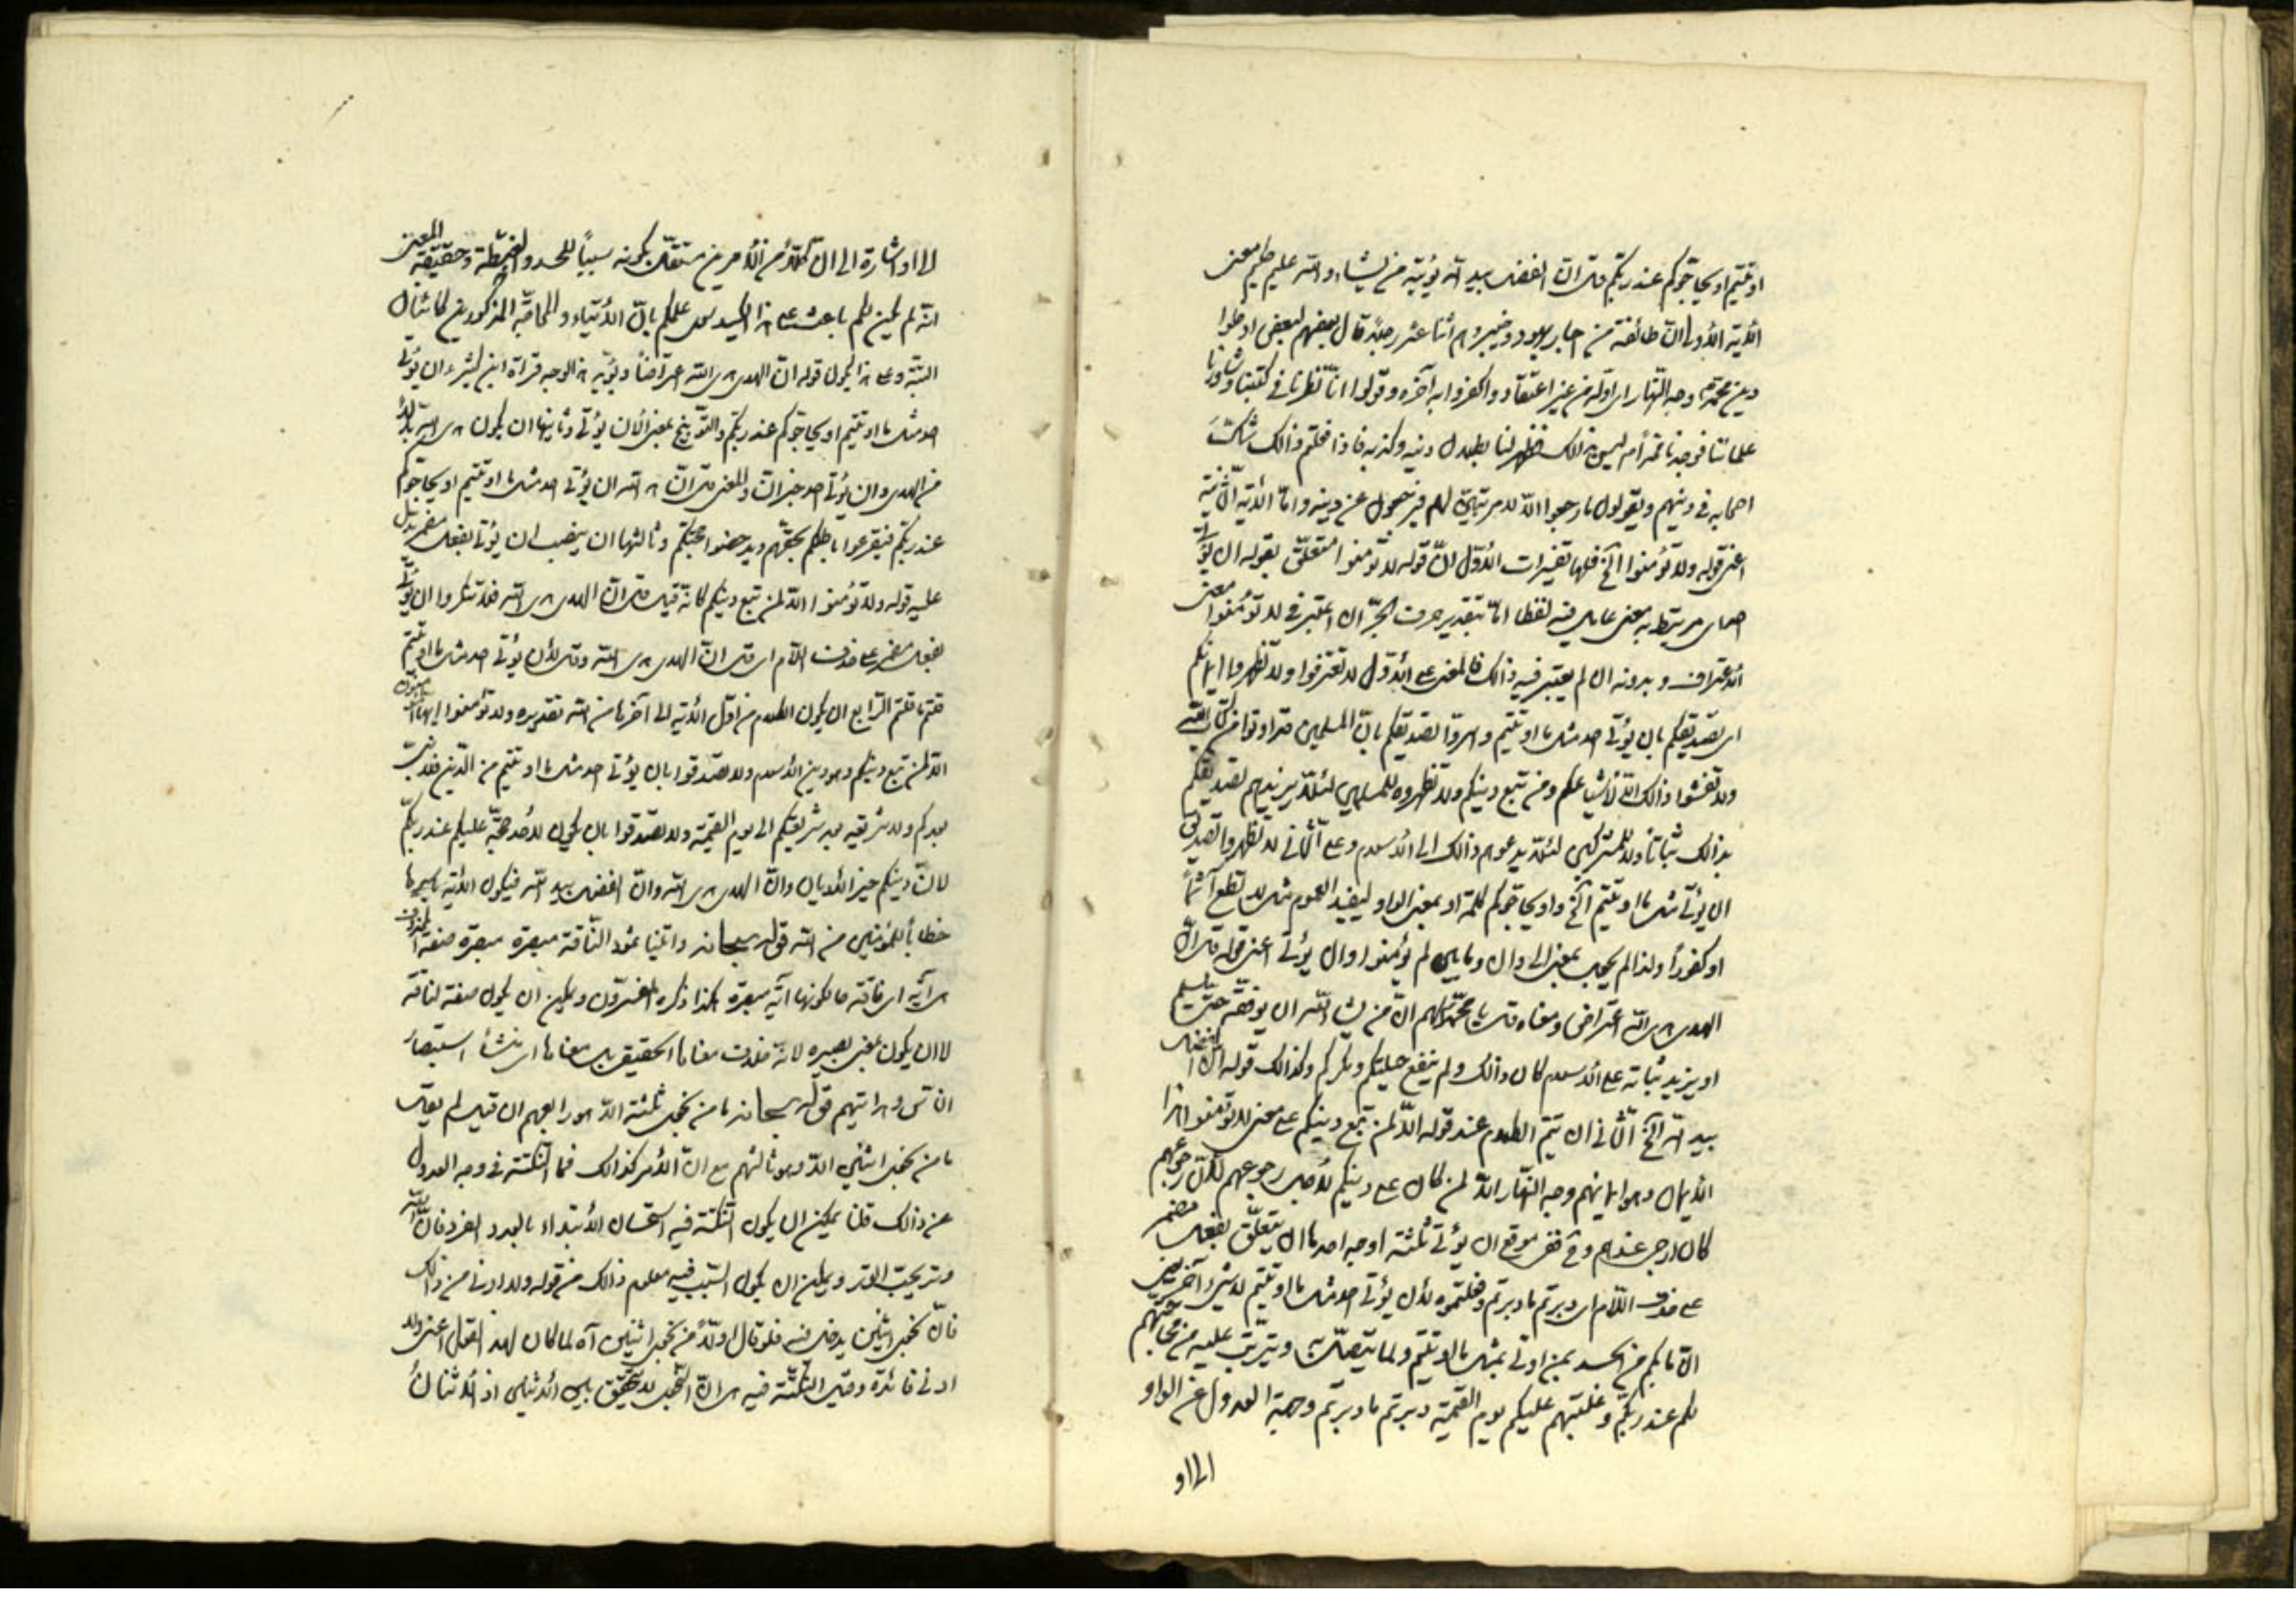 اوتيتم او يحاجوكم عند ربكم قل ان الفضل بيد الله يؤتيه من يشاء والله عليم حكيم معنى
الآية الأولى ان طائفة من احبار يهود وخيبر وهم اثنا عشر رجلا قال بعضهم لبعض ادخلوا
دين محمد وجه النهار اى اوله من غير اعتقاد واكفروا به آخره وقولوا انا نظرنا فى كتبنا وشاورنا
علمائنا فوجدنا محمدا ليس بذالك فظهر لنا بطلان دينه وكذبه فاذا فعلتم ذالك شكت
اصحابه فى دينهم ويقولون ما رجعوا الا لامر تبين لهم فيرجعون عن دينه واما الآية الثانية
اعنى قوله ولا تؤمنوا الخ فلها تفسيرات الأول ان قوله لا تؤمنوا متعلق بقوله ان يؤتى
احد اى مرتبط به معنى عامل فيه لفظا اما بتقدير حرف الجر ان اعتبر فى لا تؤمنوا معنى
الأعتراف وبدونه ان لم يعتبر فيه ذالك فالمعنى على الأول لا تعترفوا ولا تظهروا ايمانكم
اى تصديقكم بان يؤتى احد مثل ما اوتيتم واسروا تصديقكم بان المسلمين قد اوتوا من كتاب الله
ولا تفشوا ذالك الا لأشياعكم ومن تبع دينكم ولا تظهروه للمسلمين لئلا يزيدهم تصديقكم
بذالك ثباتا ولا للمشركين لئلا يدعوهم ذالك الى الأسلام وعلى الثانى لا تظهروا تصديق
ان يؤتى مثل ما اوتيتم الخ واو يحاجوكم كلمة او بمعنى الواو ليفيد العموم مثل لا تطع آثما
او كفورا ولذا لم يجب بمعنى الى وان وما بين لم يؤمنوا وان يؤتى اعنى قوله قل ان
الهدى هدى الله اعتراض ومعناه قل يا محمد لهم ان من يشاء الله ان يوفقه حتى يسلم
او يزيد ثباته على الأسلام كان ذالك ولم ينفع حيلتكم ومكركم وكذالك قوله ان الفضل
بيد الله الخ الثانى ان يتم الكلام عند قوله الا لمن تبع دينكم على معنى لا تؤمنوا هذا
الأيمان وهو ايمانهم وجه النهار الا لمن كان على دينكم لأجل رجوعهم لأن رجوعهم
كان ارجى عندهم وفى موقع ان يؤتى ثلثة اوجه احدها ان يتعلق بفعل مضمر
على حذف اللام اى دبرتم ما دبرتم وفعلتموه لأن يؤتى احد مثل ما اوتيتم لا لشئ آخر يعنى
ان ما بكم من الحسد بمن اوتى بمثل ما اوتيتم ولما يتصل به ويترتب عليه من محاجتهم
لكم عند ربكم وغلبتهم عليكم يوم القيمة دبرتم ما دبرتم وجهة العدول عن الواو
الى او
الى او اشارة الى ان كلا من الأمرين مستقل بكونه سببا للحسد والغبطة وحقيقة المعنى
انه لم يكن لكم باعث على هذا الكيد سوى علمكم بان الأيتاء والمحاجة المذكورين كائنان
البتة وعلى هذا يكون قوله ان الهدى هدى الله اعتراضا ويؤيد هذا الوجه قراءة ابن كثير ءان يؤتى
احد مثل ما اوتيتم او يحاجوكم عند ربكم والتوبيخ بمعنى ألأن يؤتى وثانيها ان يكون هدى الله بدلا
من الهدى وان يؤتى احد خبر ان والمعنى قل ان هدى الله ان يؤتى احد مثل ما اوتيتم او يحاجوكم
عند ربكم فيقرعوا باطلكم بحقهم ويدحضوا حجتكم وثالثها ان ينصب ان يؤتى بفعل مضمر يدل
عليه قوله ولا تؤمنوا الا لمن تبع دينكم كانه قيل قل ان الهدى هدى الله فلا تنكروا ان يؤتى
بفعل مضمر على حذف اللام اى قل ان الهدى هدى الله وقل لأن يؤتى احد مثل ما اوتيتم
قلتم ما قلتم الرابع ان يكون الكلام من اول الآية الى آخرها من الله تقديره ولا تؤمنوا ايها المؤمنون
الا لمن تبع دينكم وهو دين الأسلام ولا تصدقوا بان يؤتى احد مثل ما اوتيتم من الدين فلا نبى
بعدكم ولا شريعة بعد شريعتكم الى يوم القيمة ولا تصدقوا بان يكون لأحد حجة عليكم عند ربكم
لان دينكم خير الأديان وان الهدى هدى الله وان الفضل بيد الله فيكون الآية باسرها
خطابا للمؤمنين من الله قوله سبحانه واتينا ثمود الناقة مبصرة مبصرة صفة لمحذوف
اى آية اى ناقة حالكونها آية مبصرة هكذا ذكره المفسرون ويمكن ان يكون صفة لناقة
لا ان يكون بمعنى بصيرة لانه خلاف معناها الحقيقى بل معناها اى منشأ استبصار
الناس وهدايتهم قوله سبحانه ما من نجوى ثلثة الا هو رابعهم ان قيل لم يقل
ما من نجوى اثنين الا وهو ثالثهم مع ان الأمر كذالك فما النكتة فى وجه العدول
عن ذالك قلنا يمكن ان يكون النكتة فيه استحسان الأبتداء بالعدد الفرد فان الله
وتر يحب الوتر ويمكن ان يكون السبب فيه معلوم ذالك من قوله ولا ادنى من ذالك
فان نجوى اثنين يدخل فيه فلو قال اولا من نجوى اثنين آه لما كان لهذا القول اعنى ولا
ادنى فائدة وقيل النكتة فيه هى ان النجوى لا يتحقق بين الأثنين اذ الأثنان